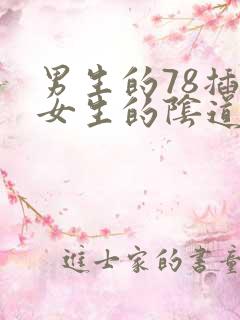 男生的78插
女生的陰道
進士家的書童